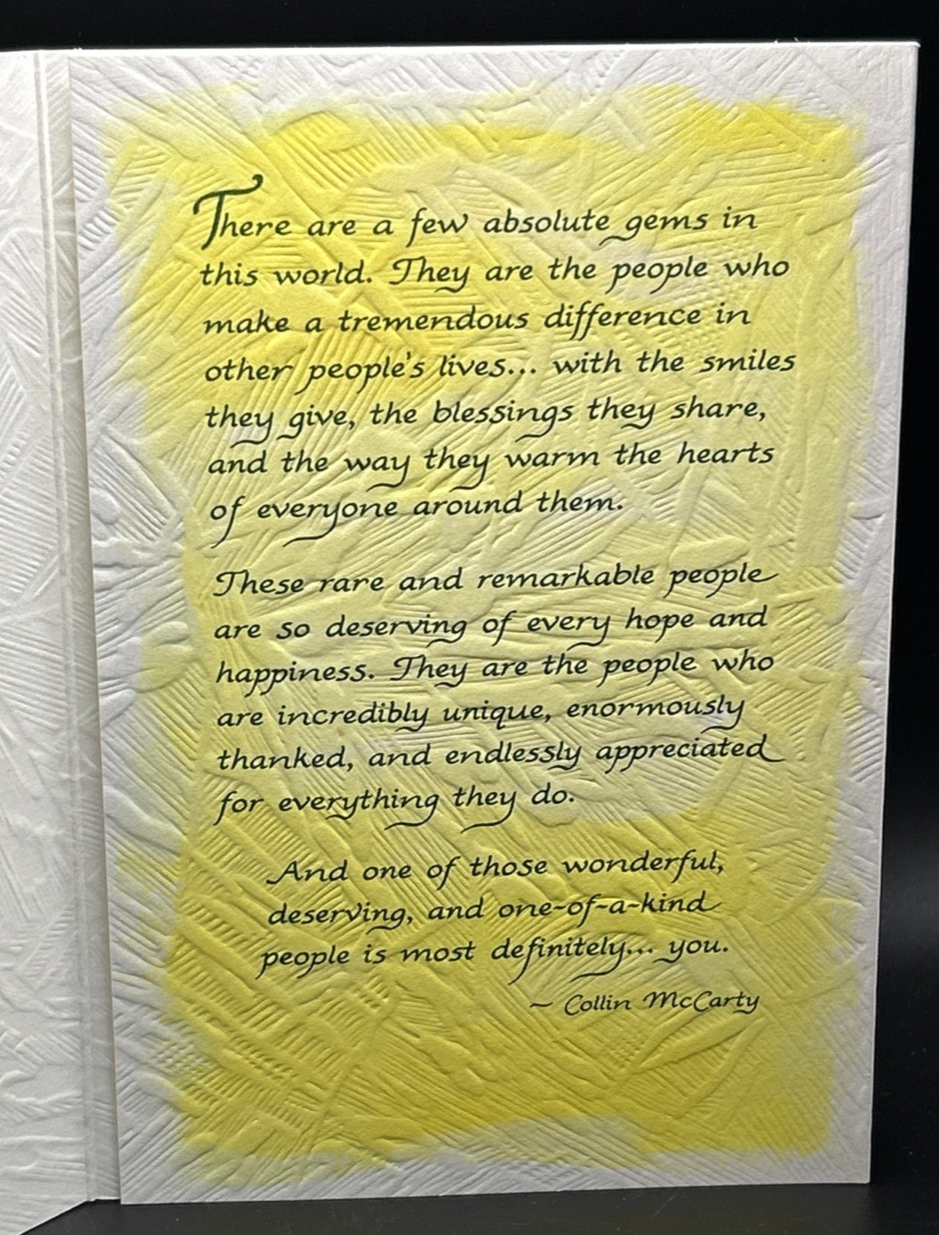 There are a few absolute gems in
this world. They are the people who
make a tremendous difference in
other people's lives... with the smiles
they give, the blessings they share,
and the way they warm the hearts
of everyone around them.
These rare and remarkable people
are so deserving of every hope and
happiness. They are the people who
are incredibly unique, enormously
thanked, and endlessly appreciated
for everything they do.
And one of those wonderful,
deserving, and one-of-a-kind
people is most definitely... you.
~ Collin McCarty